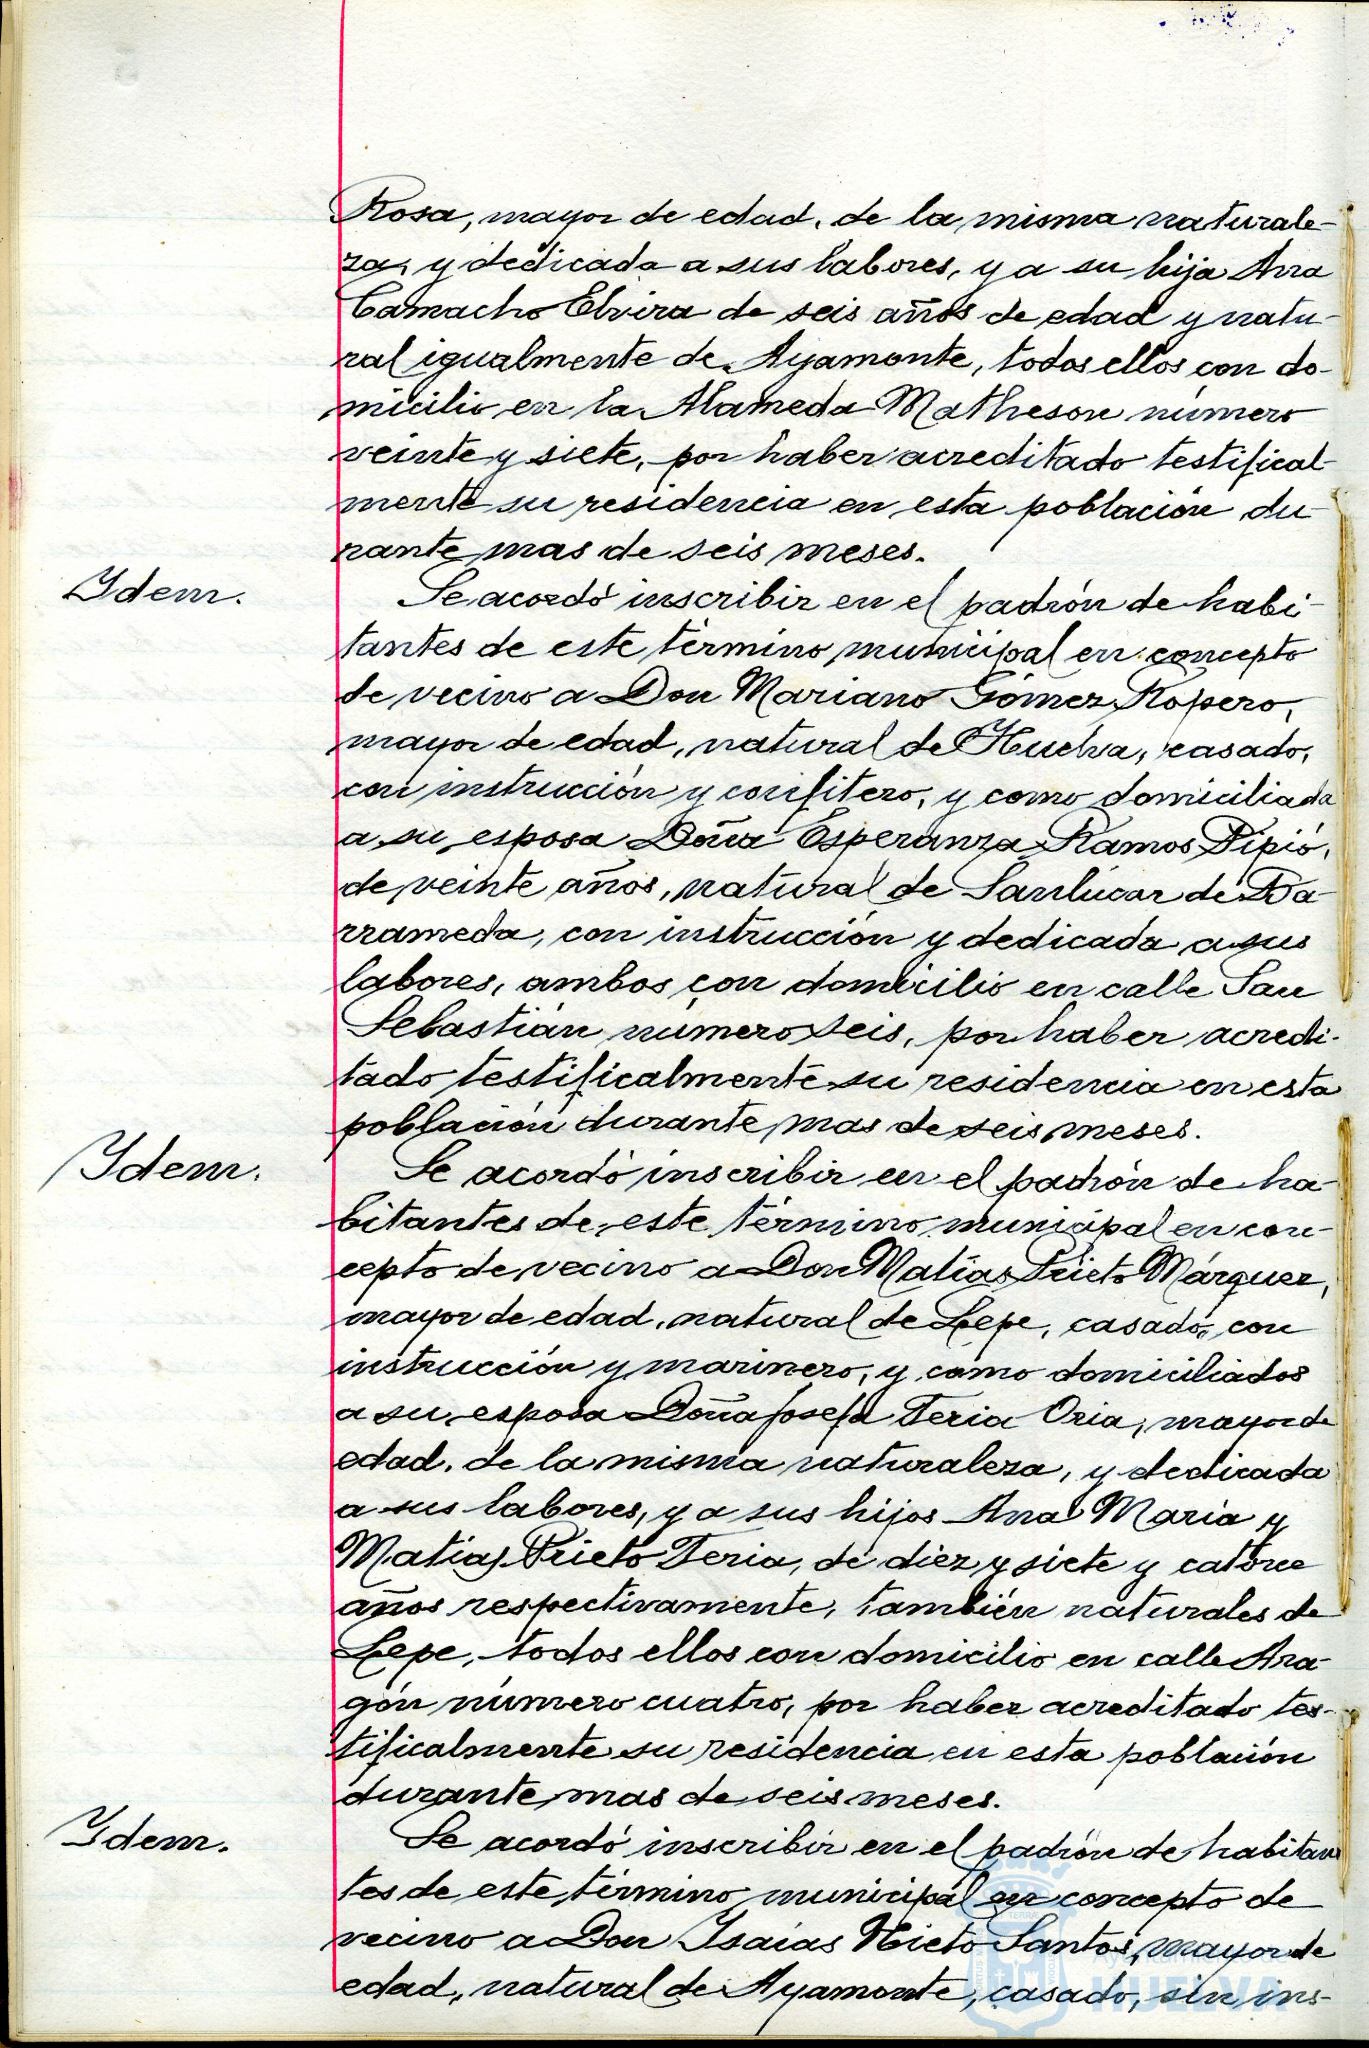 Rosa, mayor de edad, de la misma naturale-
za, y dedicada a sus labores, y a su hija Ana
Camacho Elvira de seis años de edad y natu-
ral igualmente de Ayamonte, todos ellos con do-
micilio en la Alameda Matheson número
veinte y siete, por haber acreditado testifical-
mente su residencia en esta población du-
rante mas de seis meses.
Ydem.
Se acordó inscribir en el padrón de habi-
tantes de este término municipal en concepto
de vecino a Don Mariano Gómez Ropero,
mayor de edad, natural de Huelva, casado,
con instrucción y confitero, y como domiciliada
a su esposa Doña Esperanza Ramos Pipió,
de veinte años, natural de Sanlúcar de Ba-
rrameda, con instrucción y dedicada a sus
labores, ambos con domicilio en calle San
Sebastián número seis, por haber acredi-
tado testificalmente su residencia en esta
población durante mas de seis meses.
Ydem.
Se acordó inscribir en el padrón de ha-
bitantes de este término municipal en con-
cepto de vecino a Don Matías Prieto Márquez,
mayor de edad, natural de Lepe, casado, con
instrucción y marinero, y como domiciliados
a su esposa Doña Josefa Feria Oria, mayor de
edad, de la misma naturaleza, y dedicada
a sus labores, y a sus hijos Ana Maria y
Matias Prieto Feria, de diez y siete y catorce
años respectivamente, también naturales de
Lepe, todos ellos con domicilio en calle Ara-
gón número cuatro, por haber acreditado tes-
tificalmente su residencia en esta población
durante mas de seis meses.
Ydem.
Se acordó inscribir en el padrón de habitan
tes de este término municipal en concepto de
vecino a Don Ysaías Nieto Santos, mayor de
edad, natural de Ayamonte, casado, sin ins-
Ayuntamiento de
HUELVA